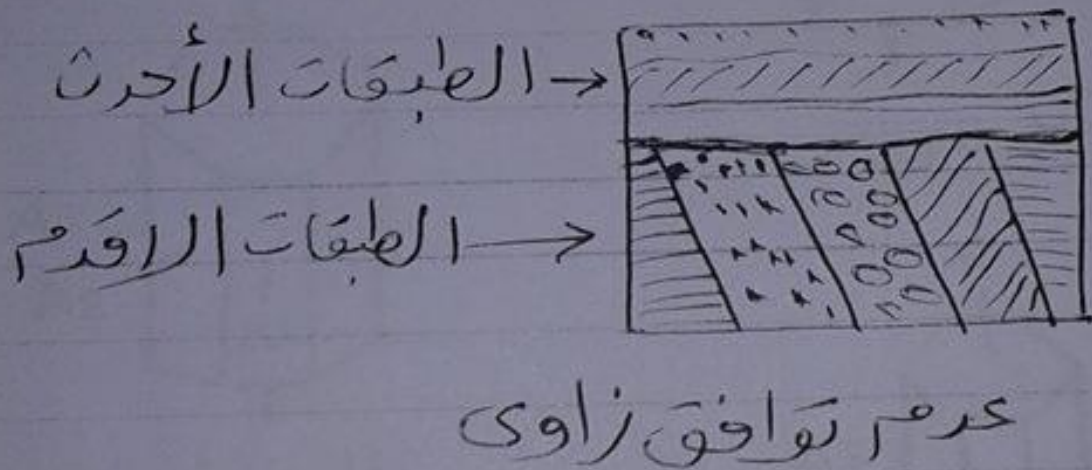 الطبقات الأحدث
الطبقات الاقدم
عدم توافق زاوى